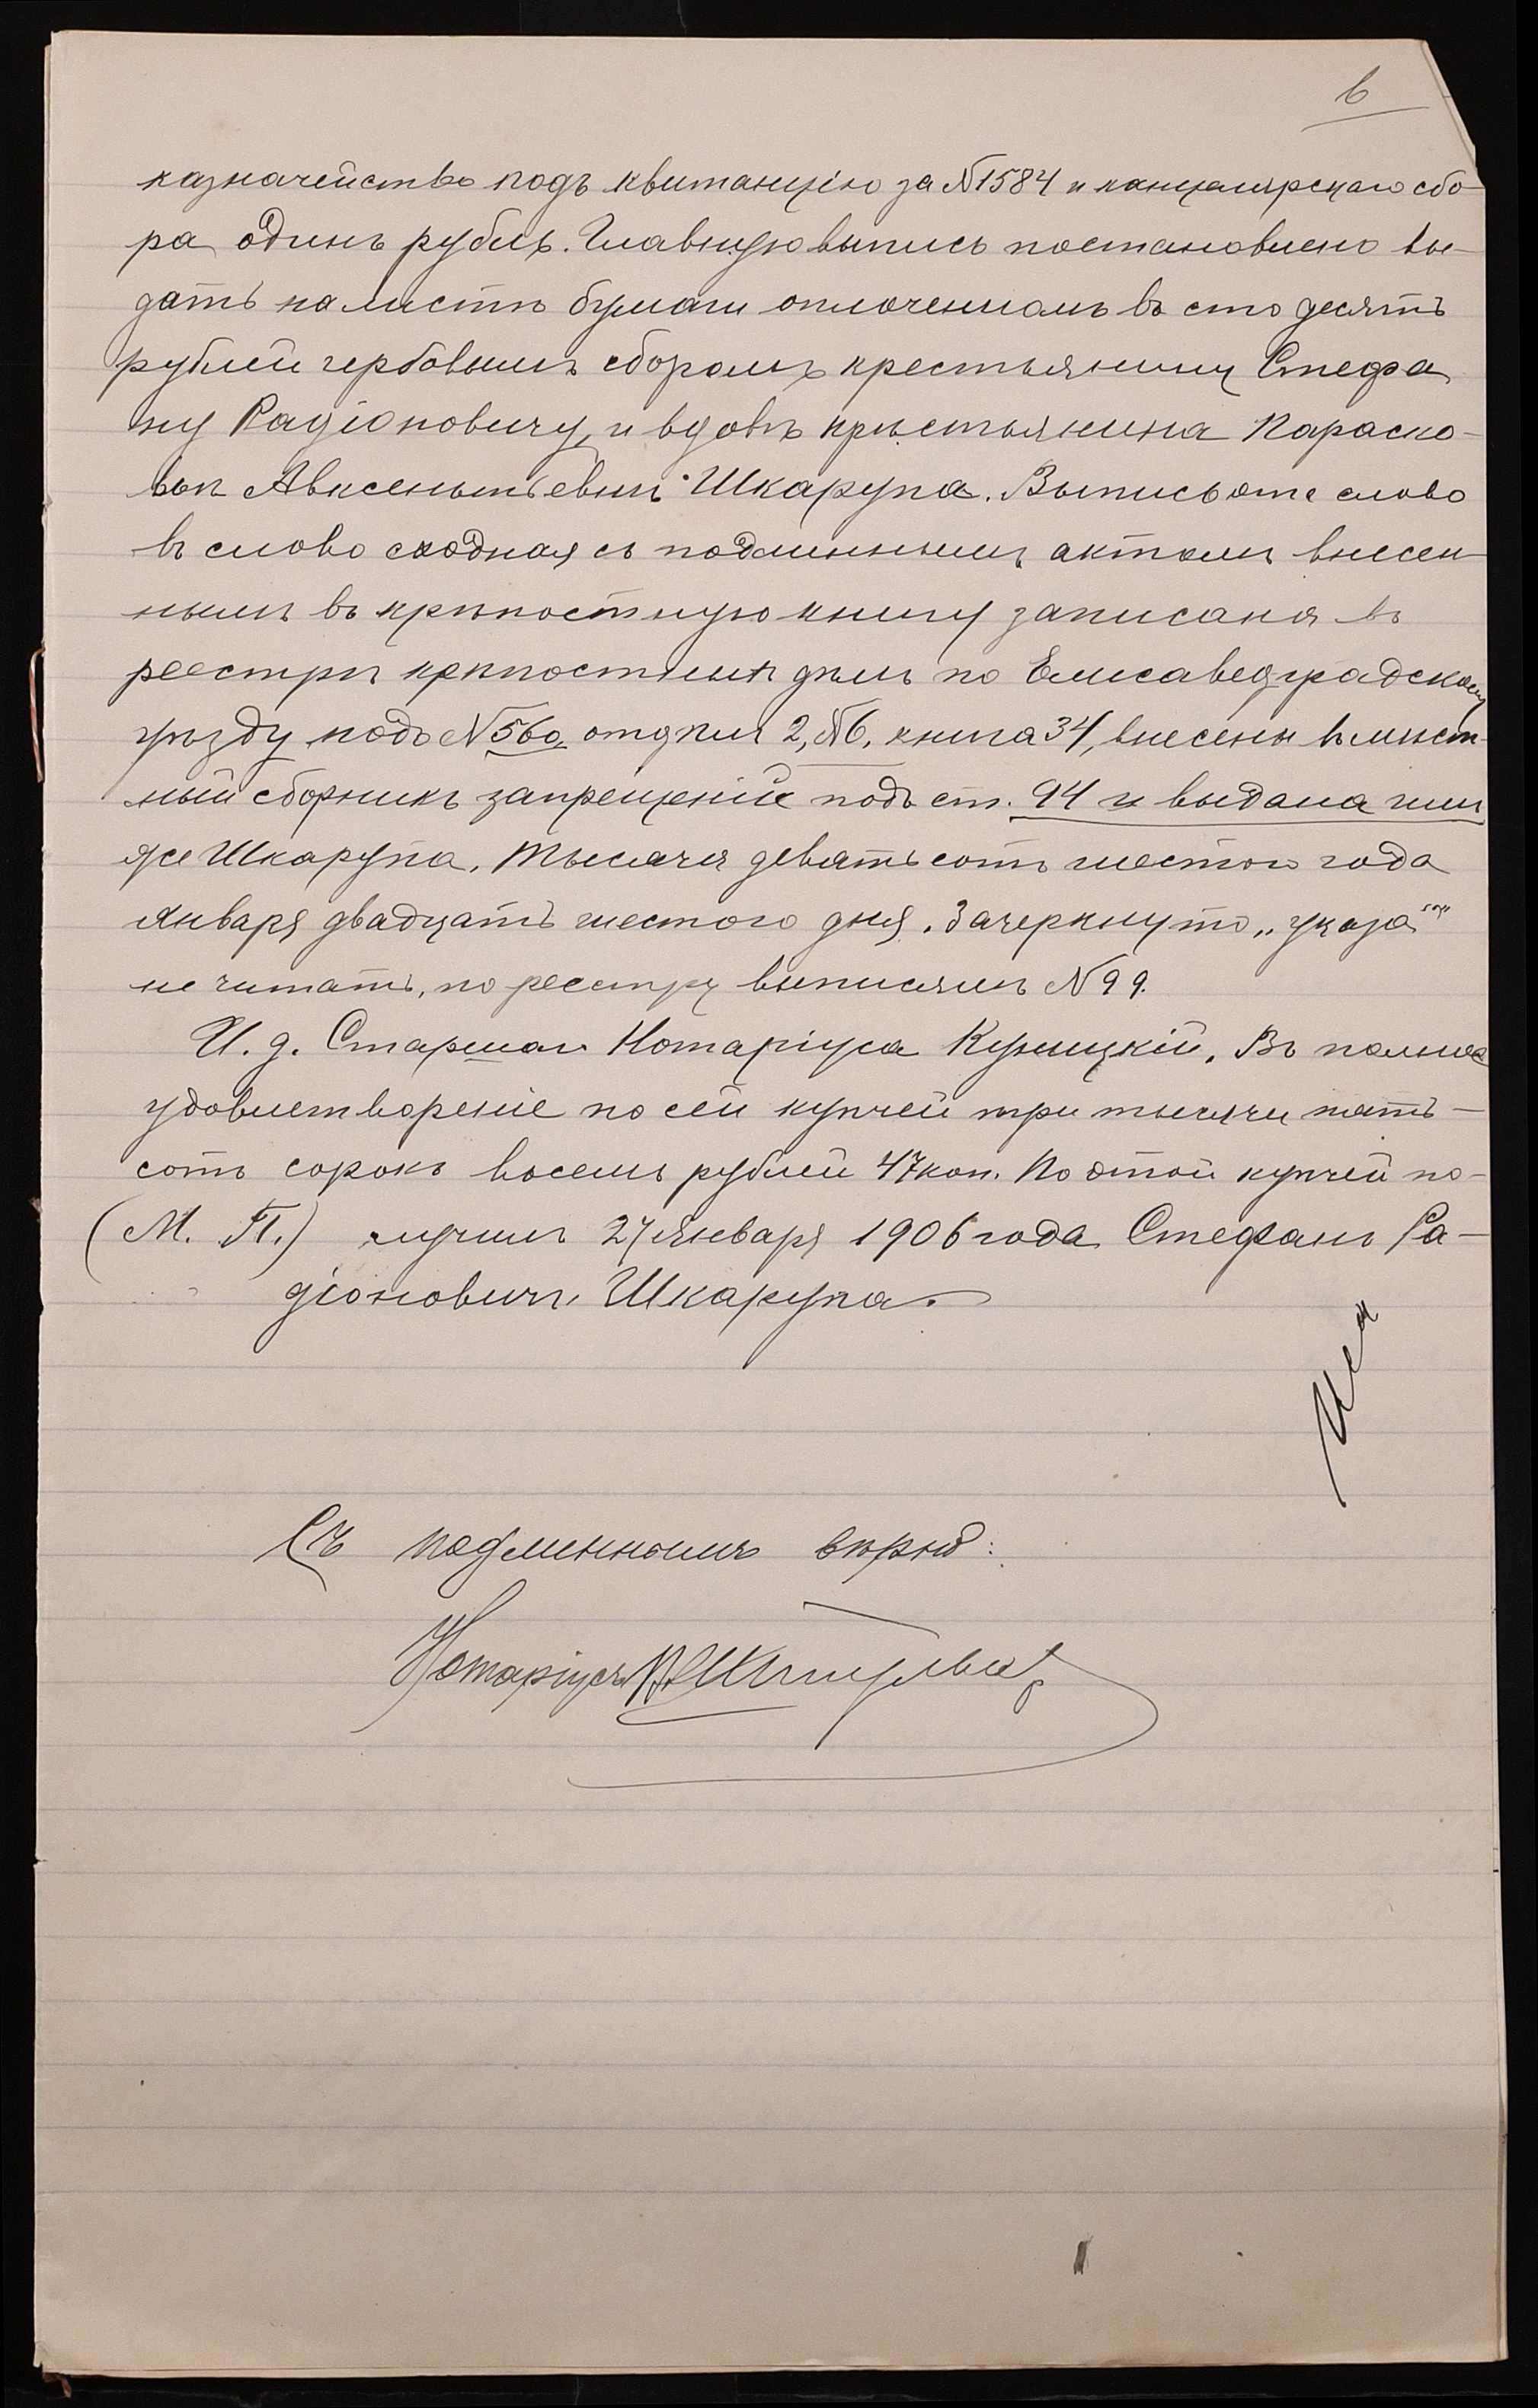 6
казначейство подъ квитанцію за №1584 и канцелярскаго сбо-
ра одинъ рубль. Главную выпись постановлено вы-
дать на листѣ бумаги оплоченномъ въ сто десять
рублей гербовымъ сборомъ крестьянину Стефа
ну Радіоновичу, и вдовѣ крестьянина Параско-
вьѣ Авксентьевнѣ Шкарупа. Выпись эта слово
въ слово сходная съ подлиннымъ актомъ внесен-
нымъ въ крѣпостную книгу записана въ
реестрѣ крѣпостныхъ дѣлъ по Елисаведградскому
уѣзду подъ №560, отдѣлъ 2, №6, книга 34, внесены въ мѣст-
ный сборникъ запрещеній подъ ст. 94 и выдана имъ
же Шкарупа, Тысяча девятьсотъ шестого года
Января двадцать шестого дня. Зачеркнуто „указа"
не читать, по реестру выписямъ №99.
И. д. Старшаго Нотаріуса Куницкій, Въ полное
удовлетвореніе по сей купчей три тысячи пять-
сотъ сорокъ восемь рублей 47 коп. По этой купчей по-
(М. П.) лучилъ 27 Января 1906 года Стефанъ Ра-
діоновичъ Шкарупа.
Съ подлиннымъ вѣрно:
Нотаріусъ